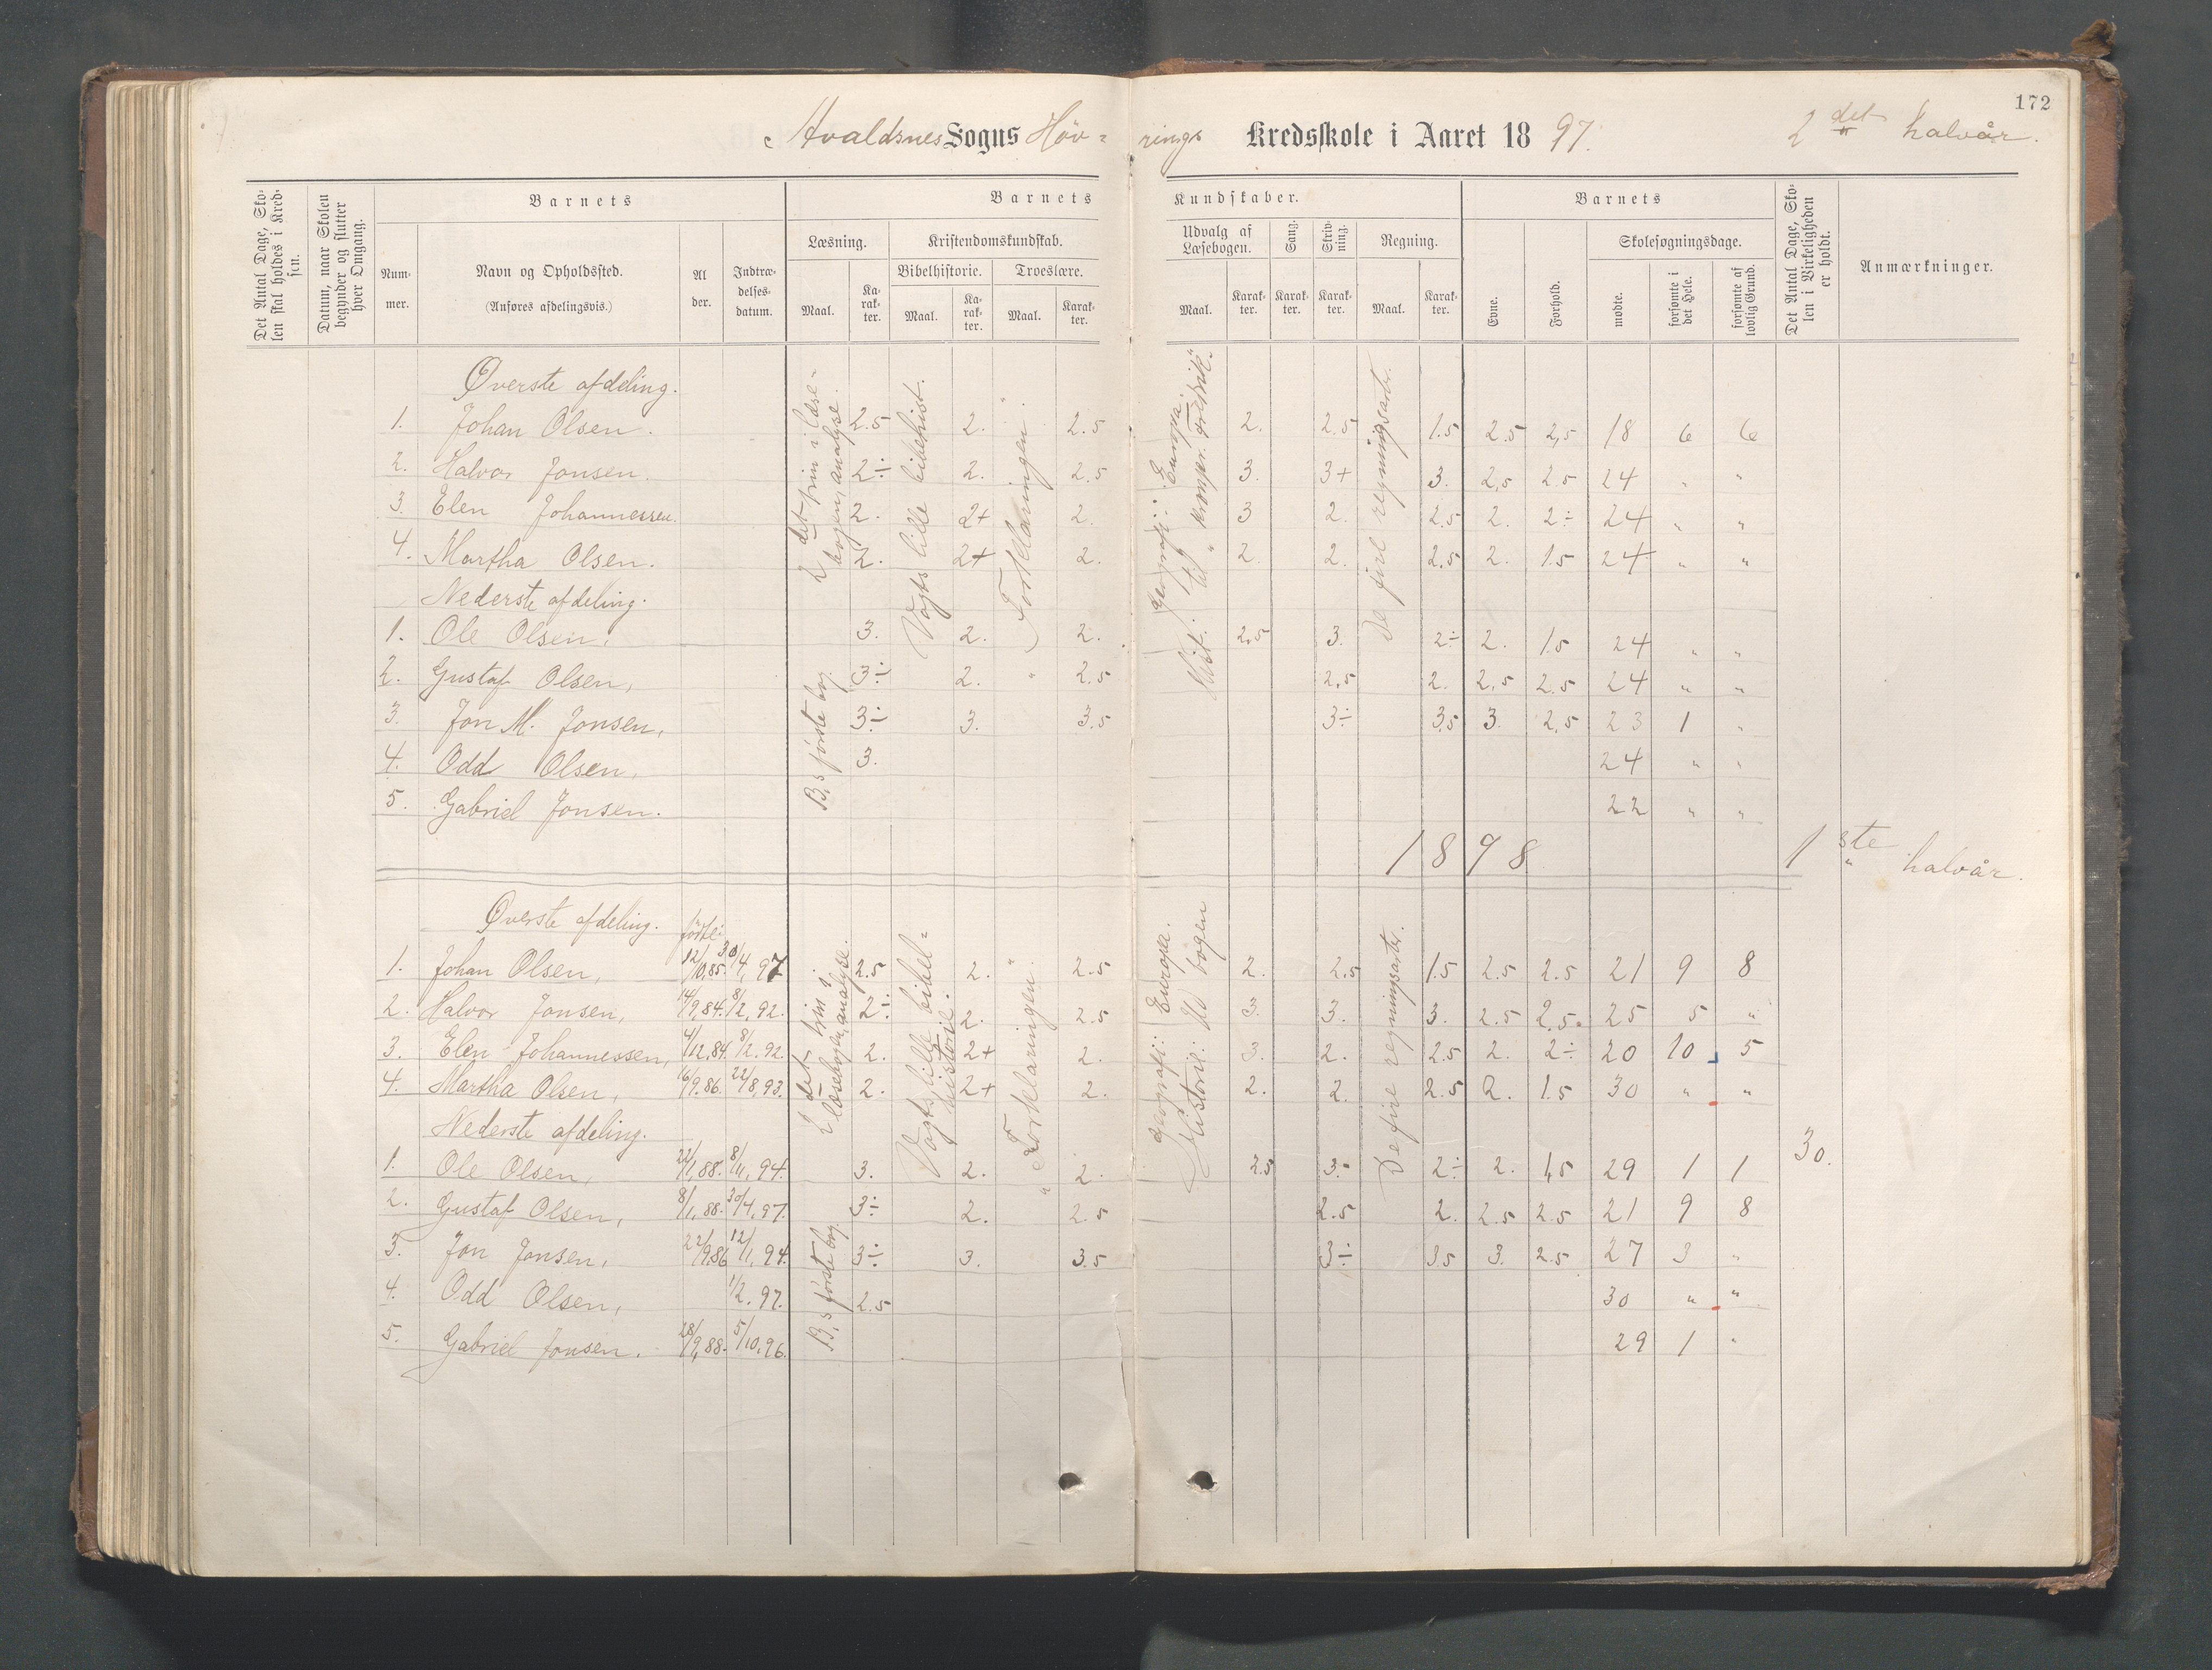 172
Avaldsnes Sogns Höv- rings Kredsskole i Aaret 18 97. 2det halvår.
Det Antal Dage, Skolen skal holdes i Kredsen.
Datum, naar Skolen begynder og slutter hver Omgang.
Barnets
Nummer.
Navn og Opholdssted.
(Anføres afdelingsvis.)
Alder.
Indtrædelsesdatum.
Barnets Kundskaber.
Læsning.
Maal.
Karakter.
Kristendomskundskab.
Bibelhistorie.
Maal.
Karakter.
Troeslære.
Maal.
Karakter.
Udvalg af Læsebogen.
Maal.
Karakter.
Sang.
Karakter.
Skrivning.
Karakter.
Regning.
Maal.
Karakter.
Barnets
Evne.
Forhold.
Skolesøgningsdage.
mødte.
forsømte i det Hele.
forsømte af lovlig Grund.
Det Antal Dage, Skolen i Virkeligheden er holdt.
Anmærkninger.
Øverste afdeling.
2det trin i læse-
bogen, analyse.
Vogts lille bibelhist.
" Forklaringen "
geografi: Europa.
Hist. til " kronpr. Fredrik".
De fire regningsarter.
1. Johan Olsen. 2.5 2. 2.5 2. 2.5 1.5 2.5 2,5 18 6 6
2. Halvor Jonsen. 2÷ 2. 2.5 3. 3+ 3. 2,5 2.5 24 " "
3. Elen Johannessen. 2. 2+ 2. 3 2. 2.5 2. 2÷ 24 " "
4. Martha Olsen. 2. 2+ 2. 2. 2. 2.5 2. 1.5 24 " "
Nederste afdeling.
B,s første bog.
1. Ole Olsen, 3. 2. 2. 2.5 3. 2÷ 2. 1.5 24 " "
2. Gustaf Olsen, 3÷ 2. " 2.5 2,5 2. 2,5 2.5 24 " "
3. Jon M. Jonsen, 3÷ 3. 3.5 3÷ 3.5 3. 2,5 23 1 "
4. Odd Olsen, 3. 24 " "
5. Gabriel Jonsen. 22 " "
1898 1ste halvår.
Øverste afdeling. født:
2det trin i
læsebogen, analyse.
Vogts lille bibel-
historie.
" Forklaringen "
geografi: Europa.
Historie: Ud bogen
De fire regningsarter.
1. Johan Olsen, 12/10,85. 30/4, 97 2.5 2. 2.5 2. 2.5 1.5 2.5 2.5 21 9 8
2. Halvor Jonsen, 14/9,84. 8/2, 92. 2÷ 2. 2.5 3. 3. 3. 2.5 2.5. 25 5 "
3. Elen Johannessen, 4/12,84. 8/2. 92. 2. 2+ 2. 3. 2. 2.5 2. 2÷ 20 10 5
4. Martha Olsen, 16/9.86. 22/8,93. 2. 2+ 2. 2. 2. 2.5 2. 1.5 30 " "
Nederste afdeling.
30.
B,s første bog.
1. Ole Olsen, 22/1,88. 8/11,94. 3. 2. 2. 2.5 3. 2÷ 2. 1,5 29 1 1
2. Gustaf Olsen, 8/1,88. 30/4,97. 3÷ 2. 2.5 2.5 2. 2.5 2.5 21 9 8
3. Jon Jonsen, 22/9.86 12/1, 94. 3÷ 3. 3.5 3÷ 3.5 3. 2.5 27 3 "
4. Odd Olsen, 1/2. 97. 2.5 30 " "
5. Gabriel Jonsen. 28/9,88. 5/10.96. 29 1 "